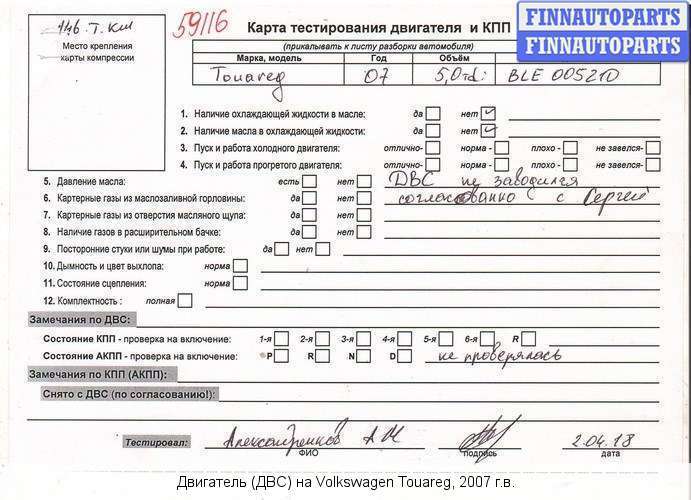 146 т.км
Место крепления
карты компрессии
59116
Карта тестирования двигателя и КПП
FINNAUTOPARTS
FINNAUTOPARTS
(прикалывать к листу разборки автомобиля)
Марка, модель Год Объём
Touareg 07 5,0 td: BLE 005210
1. Наличие охлаждающей жидкости в масле: да нет
2. Наличие масла в охлаждающей жидкости: да нет
3. Пуск и работа холодного двигателя: отлично- норма - плохо - не завелся-
4. Пуск и работа прогретого двигателя: отлично- норма - плохо - не завелся-
5. Давление масла: есть нет ДВС не заводился
6. Картерные газы из маслозаливной горловины: да нет согласованно с Сергей
7. Картерные газы из отверстия масляного щупа: да нет
8. Наличие газов в расширительном бачке: да нет
9. Посторонние стуки или шумы при работе: да нет
10. Дымность и цвет выхлопа: норма
11. Состояние сцепления: норма
12. Комплектность : полная
Замечания по ДВС:
Состояние КПП - проверка на включение: 1-я 2-я 3-я 4-я 5-я 6-я R
Состояние АКПП - проверка на включение: P R N D не проверялась
Замечания по КПП (АКПП):
Снято с ДВС (по согласованию!):
Тестировал: А М 2.04.18
ФИО подпись дата
Двигатель (ДВС) на Volkswagen Touareg, 2007 г.в.